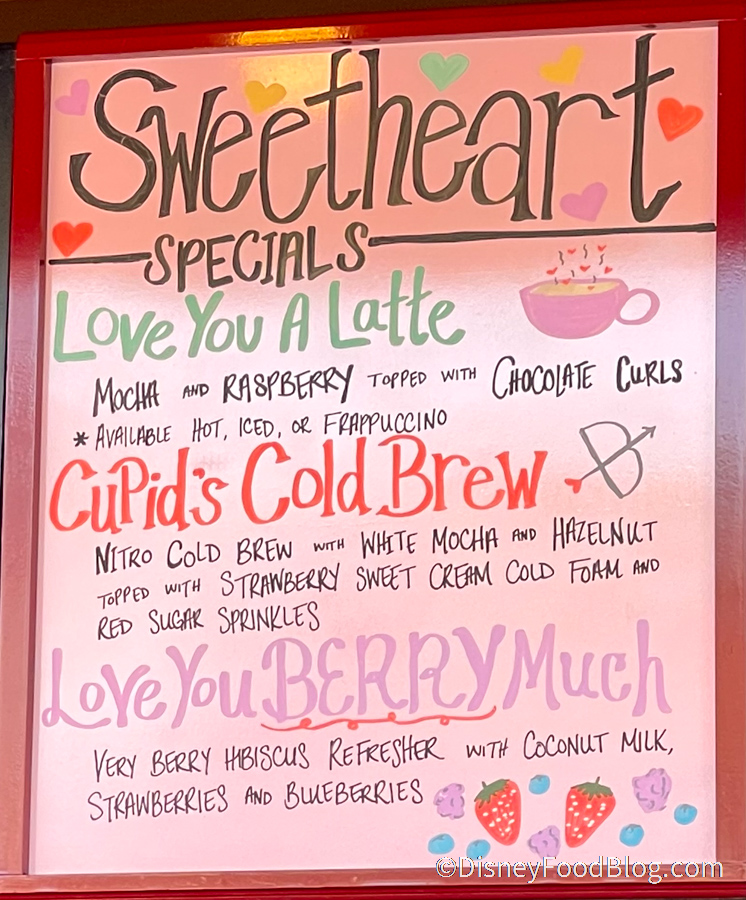 Sweetheart
SPECIALS
Love You A Latte
MOCHA AND RASPBERRY TOPPED WITH CHOCOLATE CURLS
* AVAILABLE HOT, ICED, OR FRAPPUCCINO
Cupid's Cold Brew
NITRO COLD BREW WITH WHITE MOCHA AND HAZELNUT
TOPPED WITH STRAWBERRY SWEET CREAM COLD FOAM AND
RED SUGAR SPRINKLES
Love You BERRY Much
VERY BERRY HIBISCUS REFRESHER WITH COCONUT MILK,
STRAWBERRIES AND BLUEBERRIES
©DisneyFoodBlog.com